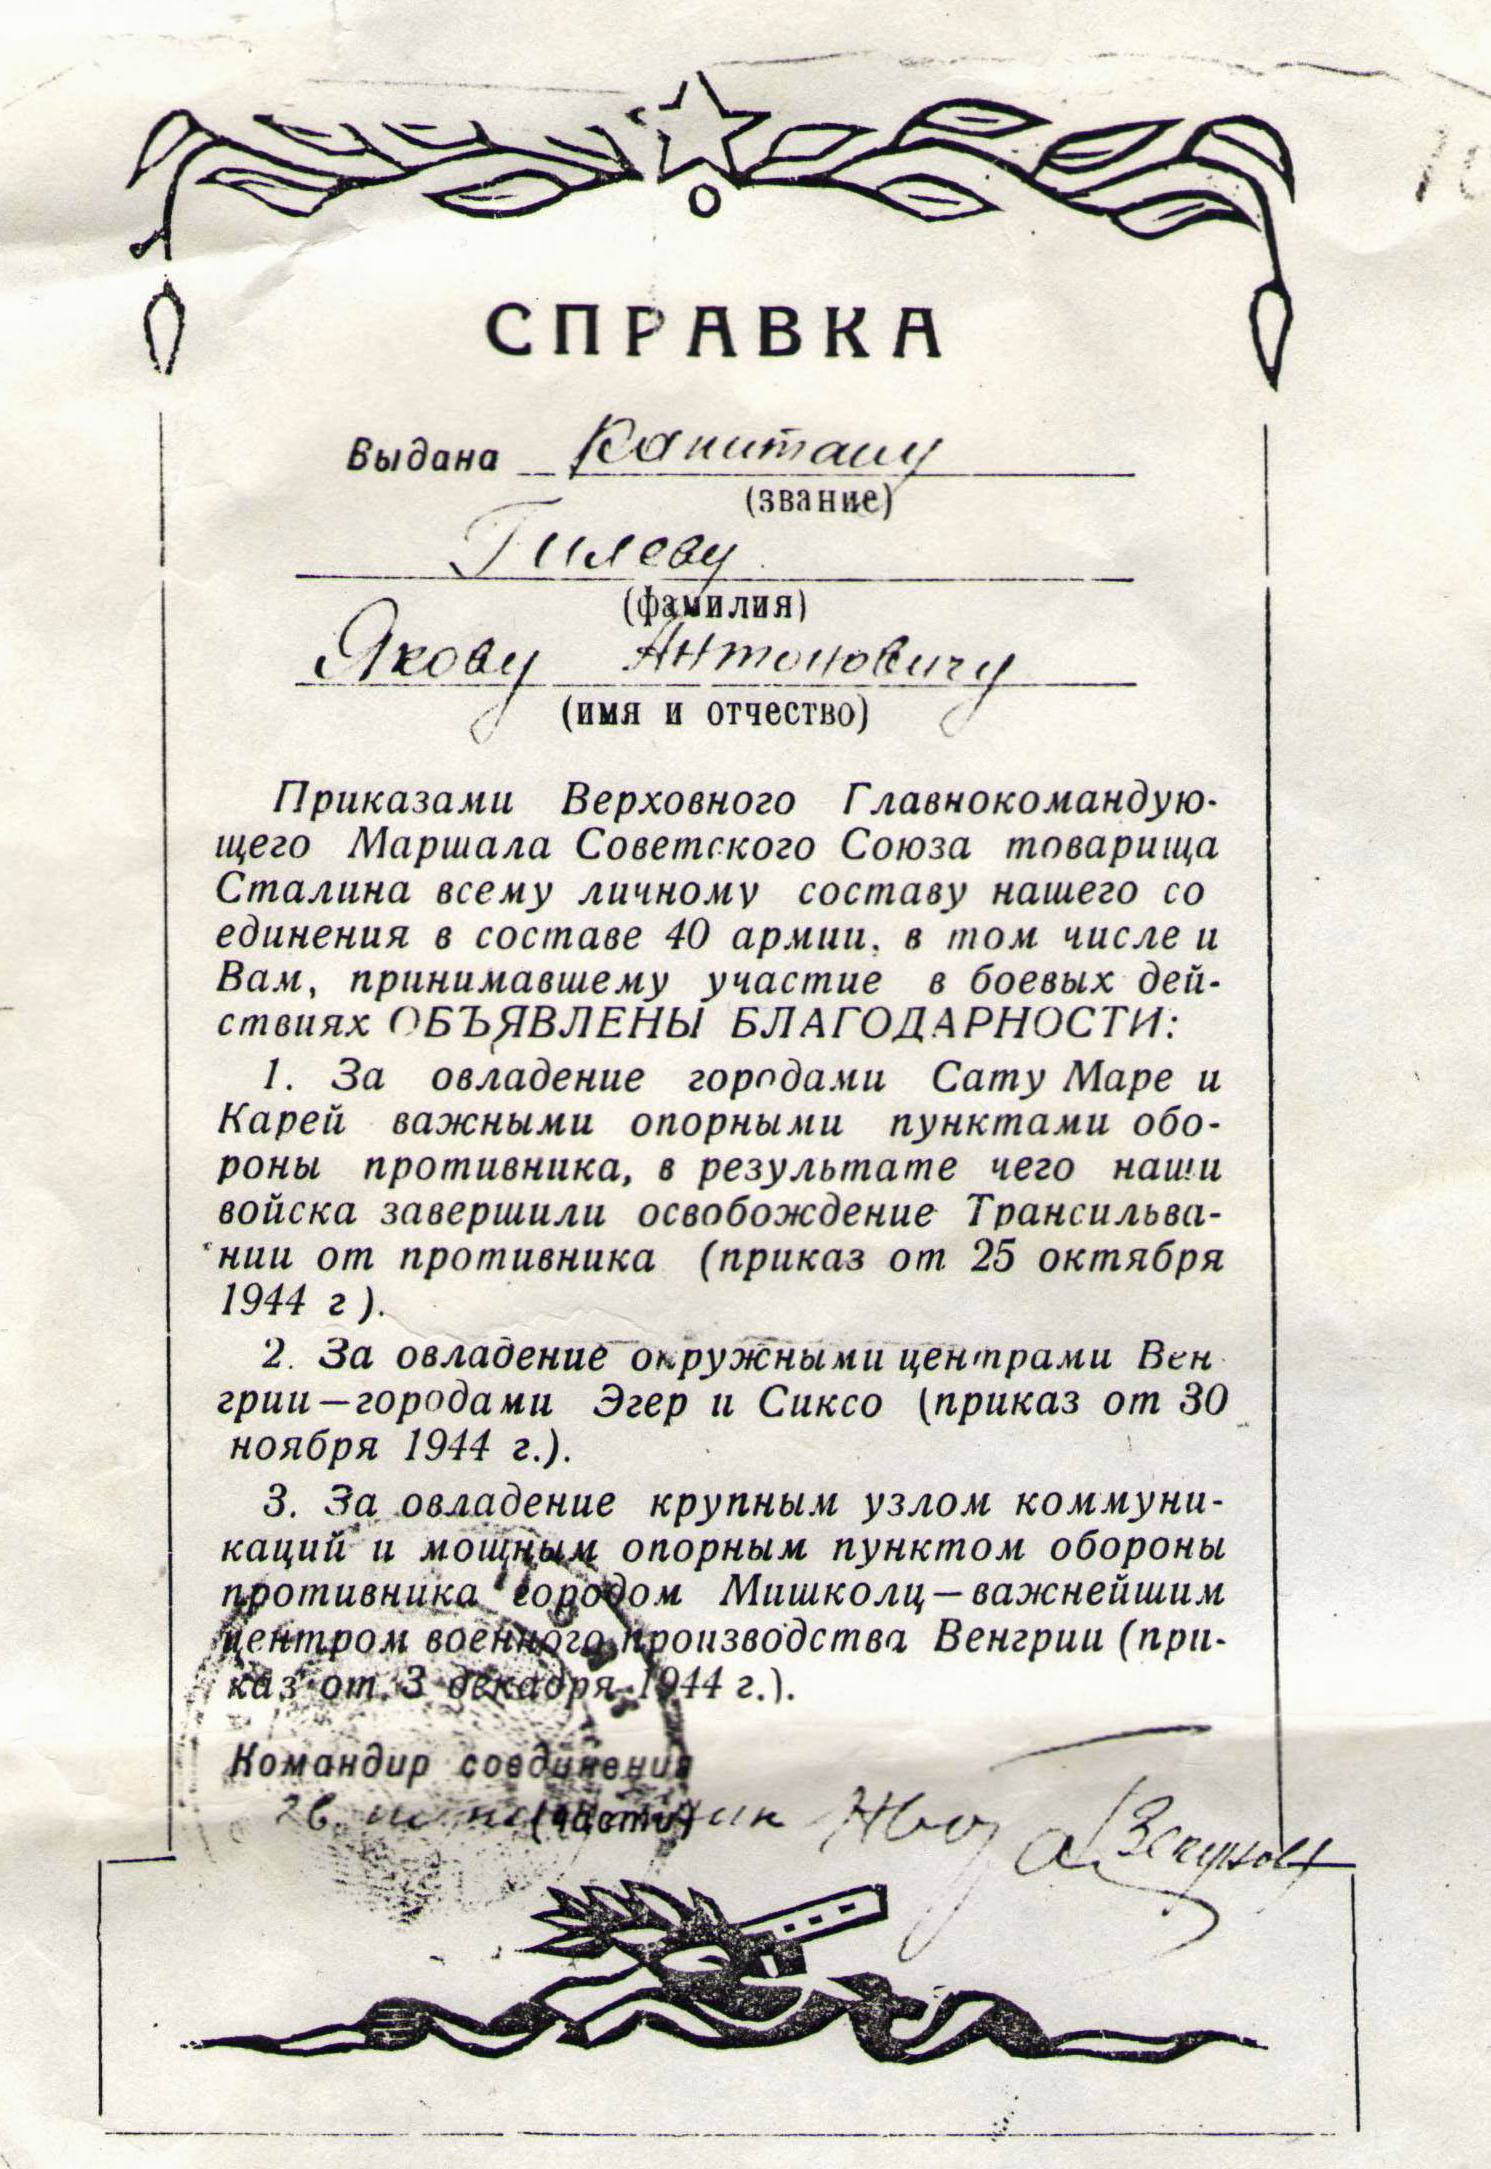 СПРАВКА
Выдана Капитану
(звание)
Гилеву
(фамилия)
Якову Антоновичу
(имя и отчество)
Приказами Верховного Главнокомандую-
щего Маршала Советского Союза товарища
Сталина всему личному составу нашего со
единения в составе 40 армии, в том числе и
Вам, принимавшему участие в боевых дей-
ствиях ОБЪЯВЛЕНЫ БЛАГОДАРНОСТИ:
1. За овладение городами Сату Маре и
Карей важными опорными пунктами обо-
роны противника, в результате чего наши
войска завершили освобождение Трансильва-
нии от противника (приказ от 25 октября
1944 г).
2. За овладение окружными центрами Вен
грии—городами Эгер и Сиксо (приказ от 30
ноября 1944 г.).
3. За овладение крупным узлом коммуни-
каций и мощным опорным пунктом обороны
противника городом Мишколц—важнейшим
центром военного производства Венгрии (при-
каз от 3 декадря 1944 г.).
Командир соединения
(части)